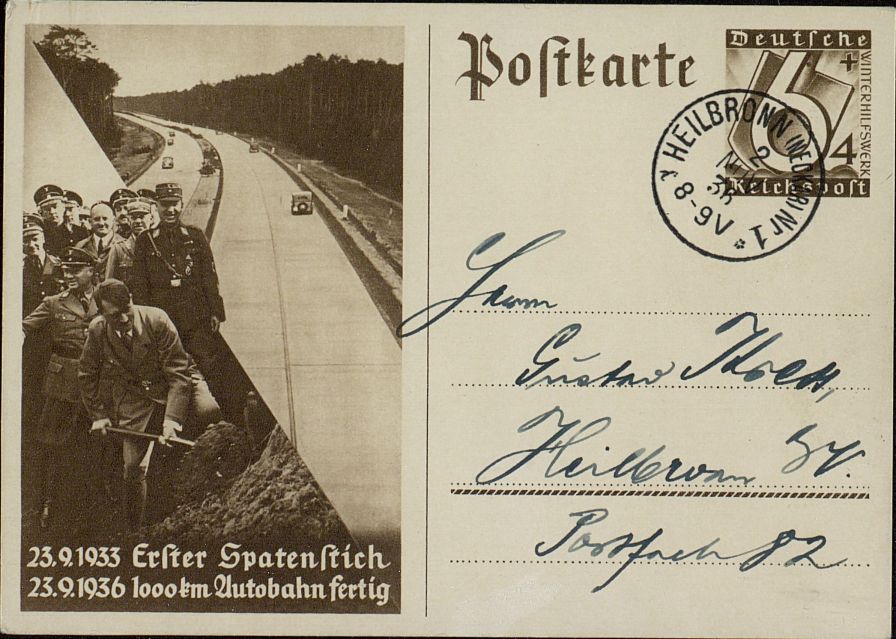 Postkarte
Deutsche
6
+
4
WINTERHILFSWERK
Reichspost
HEILBRONN (NECKAR) Nr 1
2
36
8-9V
*
Herrn
Gustav
Heilbronn
Postfach 82
23.9.1933 Erster Spatenstich
23.9.1936 1000km Autobahn fertig